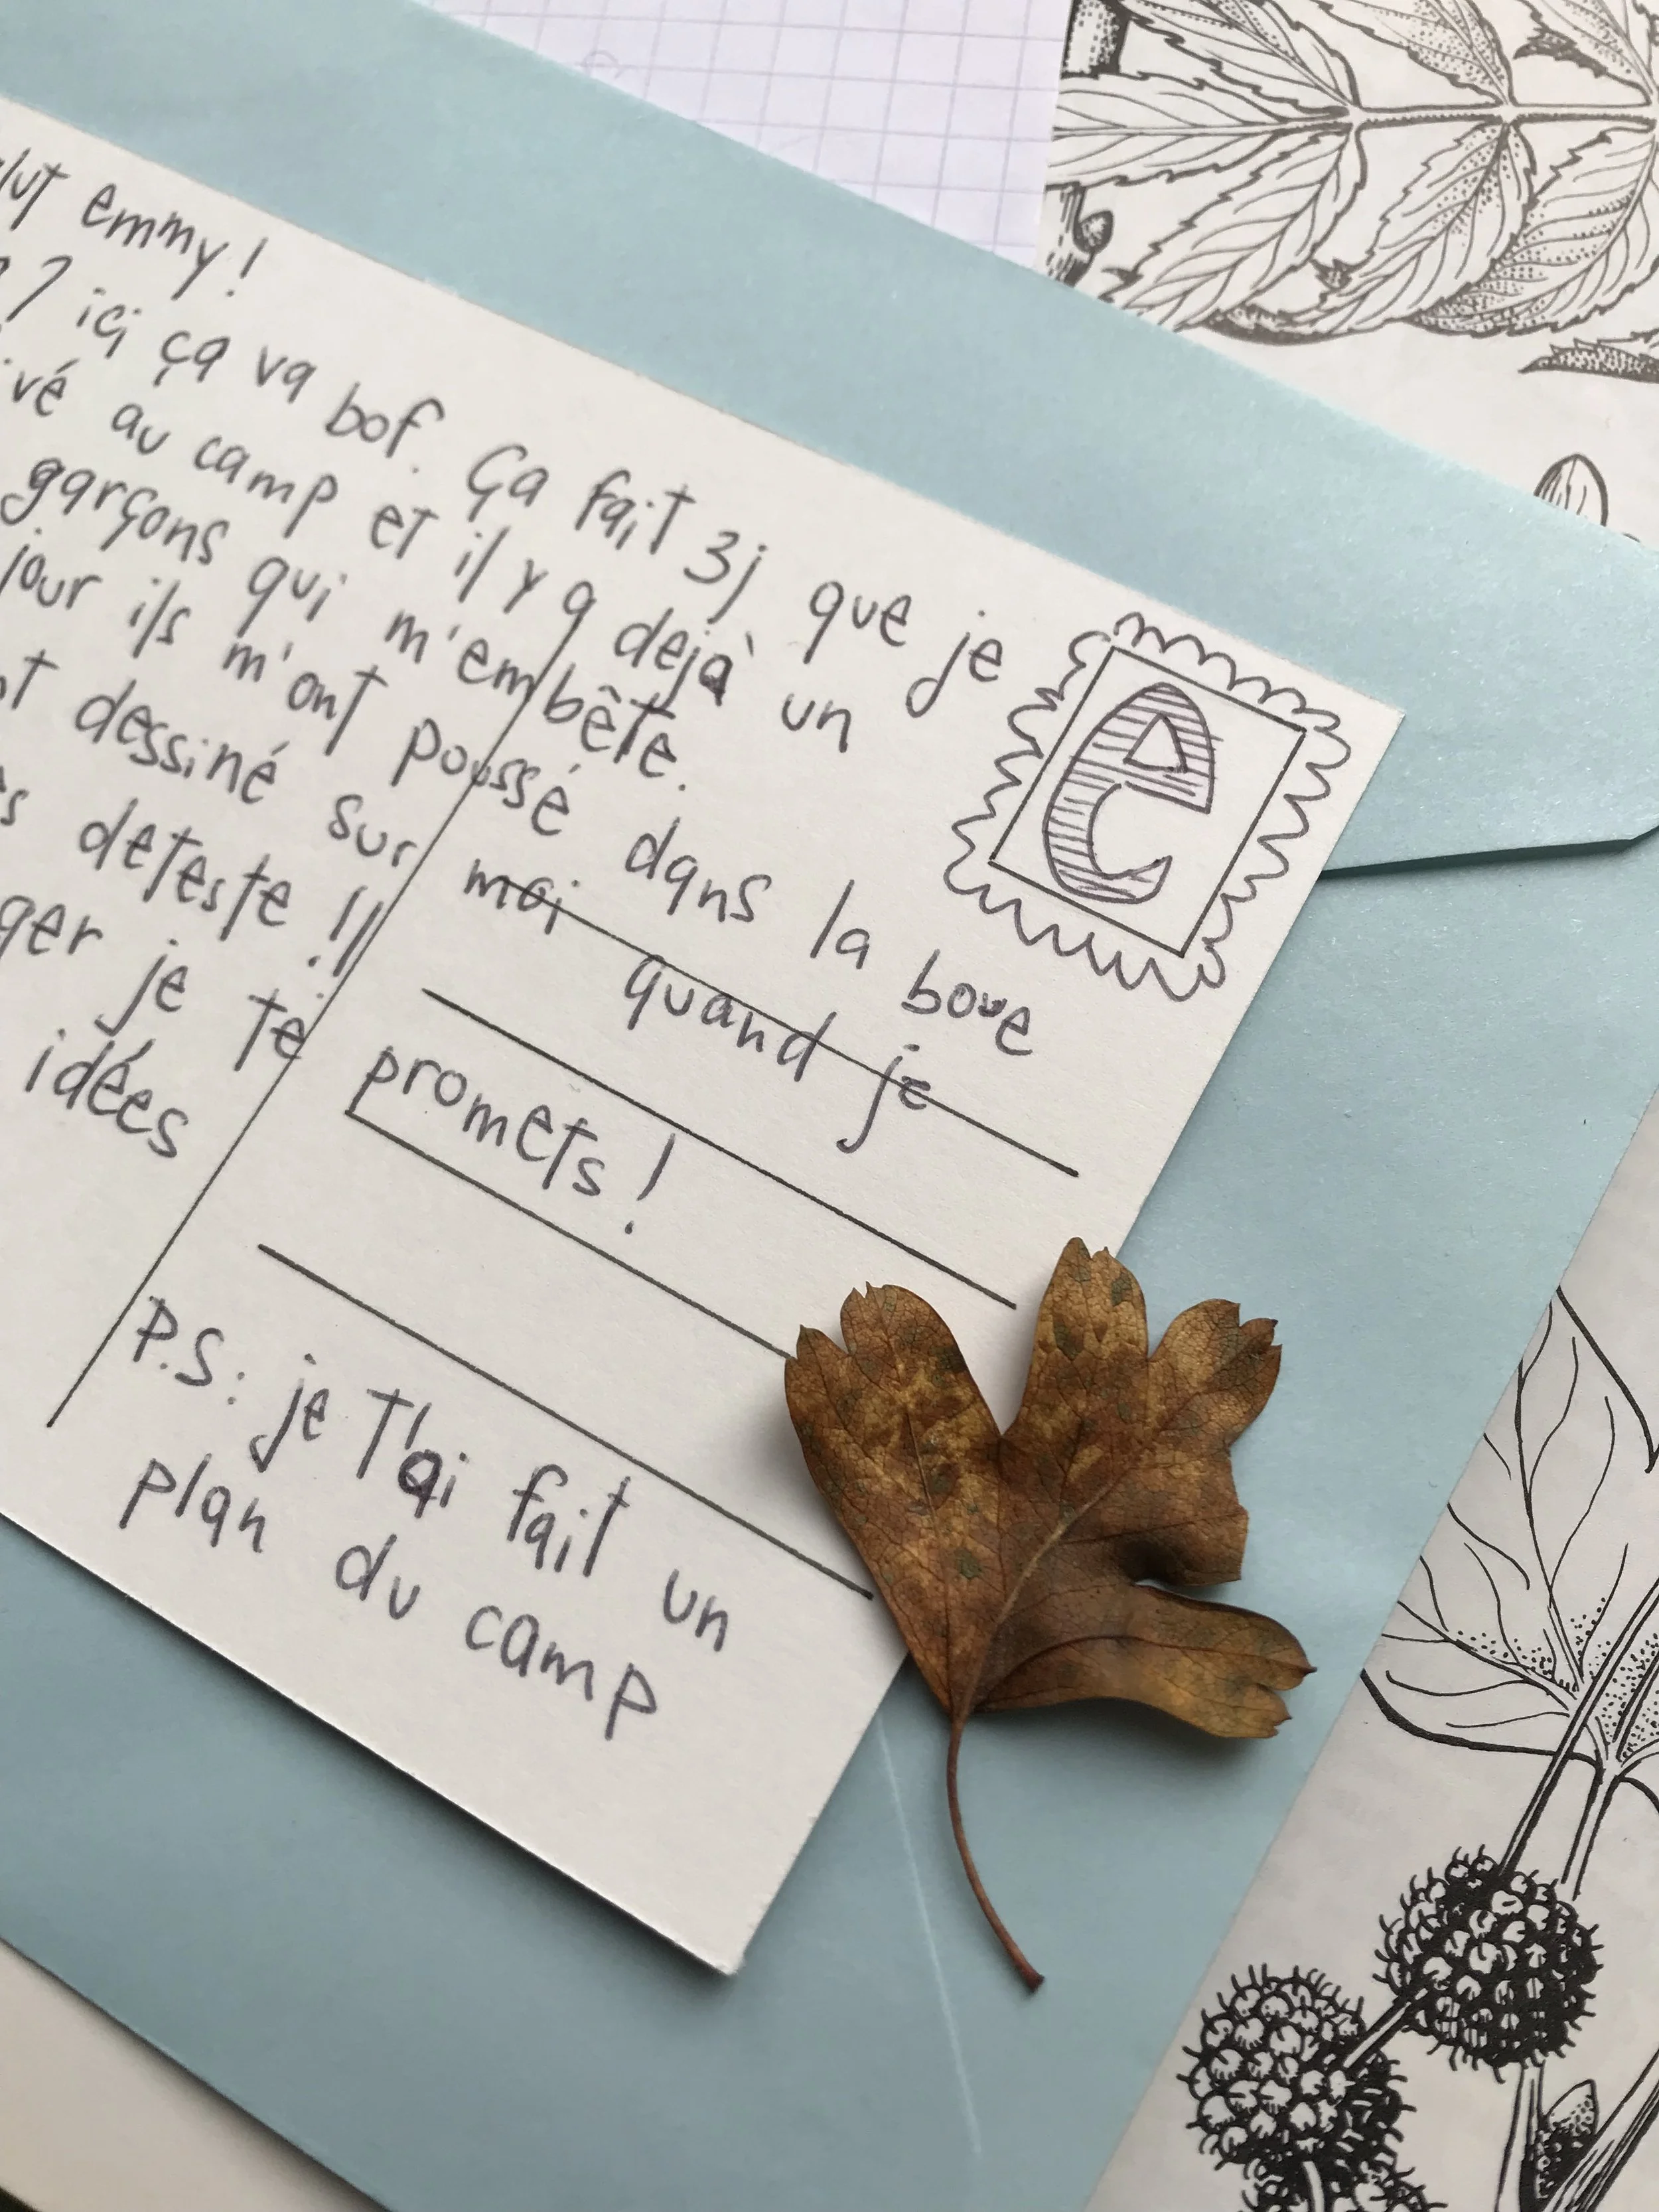 lut emmy!
? ici ça va bof. Ça fait 3j que je
ivé au camp et il y a dejà un
garçons qui m'embête.
jour ils m'ont poussé dans la boue
nt dessiné sur moi quand je
s deteste !!
ger je te promets!
idées
P.S: je t'ai fait un
plan du camp
e